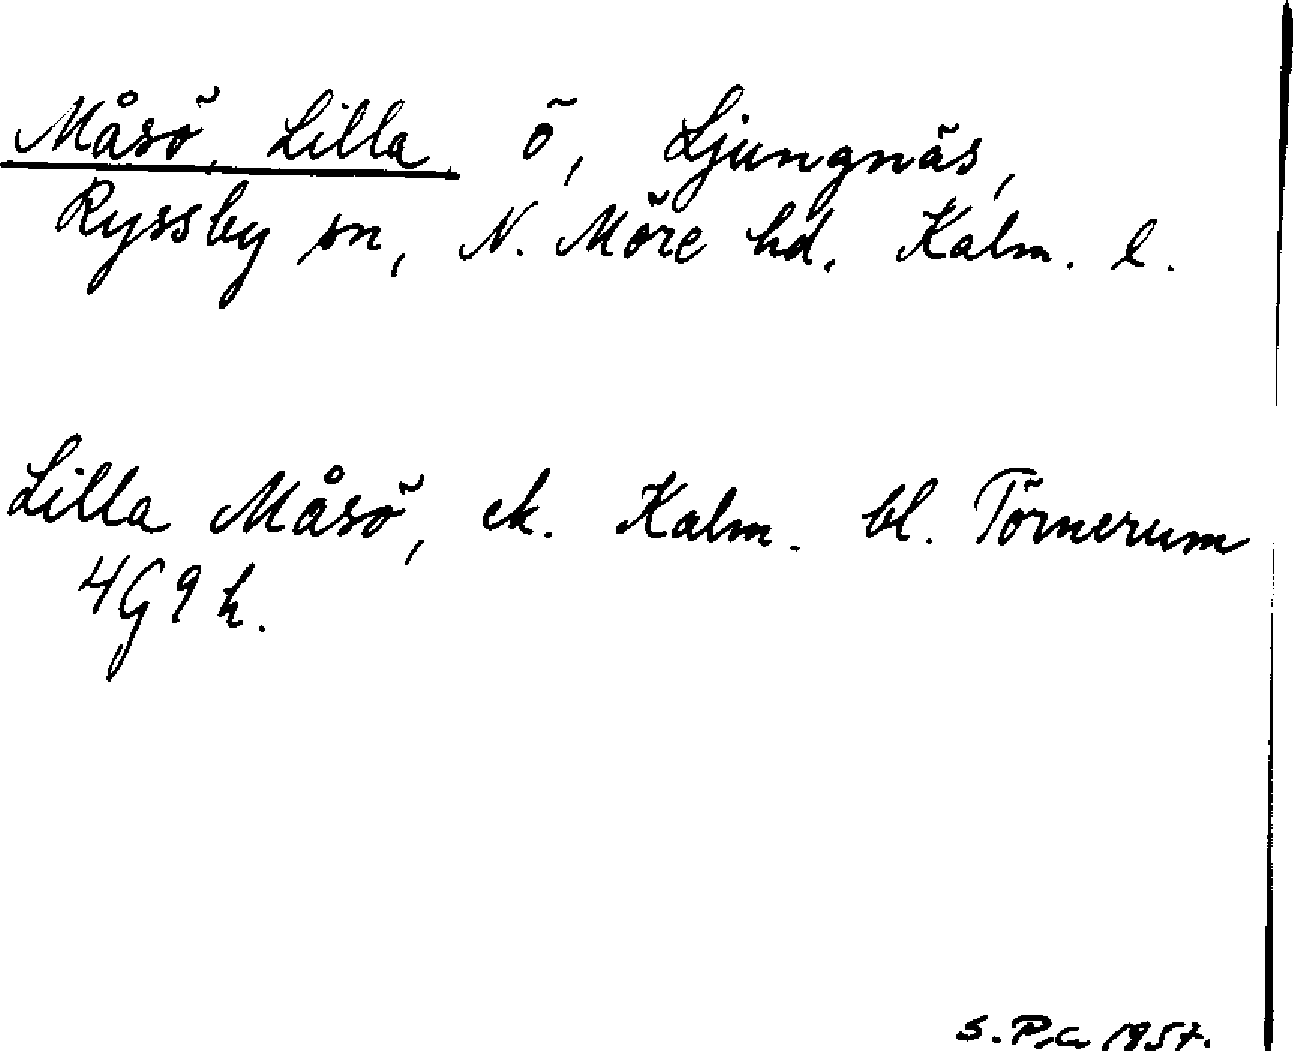 Måsö, Lilla ö, Ljungnäs,
Ryssby sn, N. Möre hd. Kalm. l.
Lilla Måsö, ek. Kalm. bl. Törnerum
4G9h.
S.P.a 1957.